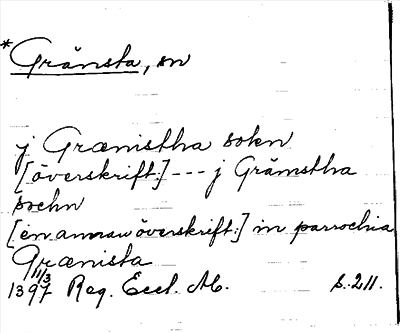 *Gränsta, sn
j Grænistha sokn
[överskrift:] --- j Grämstha
soehn
[en annan överskrift:] in parrochia
Grænista
11/3
1397 Reg. Eccl. M. s. 211.